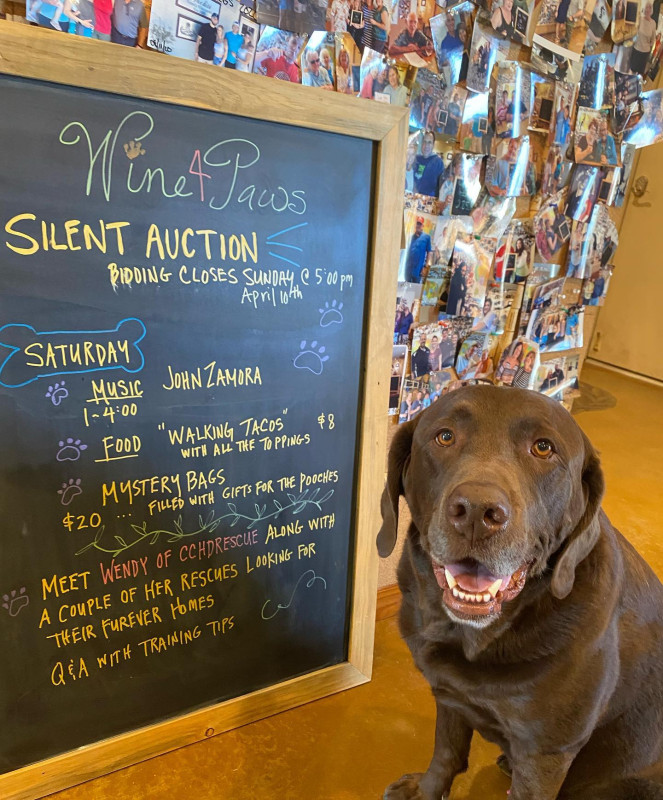 Wine 4 Paws
SILENT AUCTION
BIDDING CLOSES SUNDAY @ 5:00 pm
April 10th
SATURDAY
MUSIC JOHN ZAMORA
1-4:00
FOOD "WALKING TACOS" $8
WITH ALL THE TOPPINGS
MYSTERY BAGS
$20 ... FILLED WITH GIFTS FOR THE POOCHES
MEET WENDY OF CCHDRESCUE ALONG WITH
A COUPLE OF HER RESCUES LOOKING FOR
THEIR FUREVER HOMES
Q&A WITH TRAINING TIPS